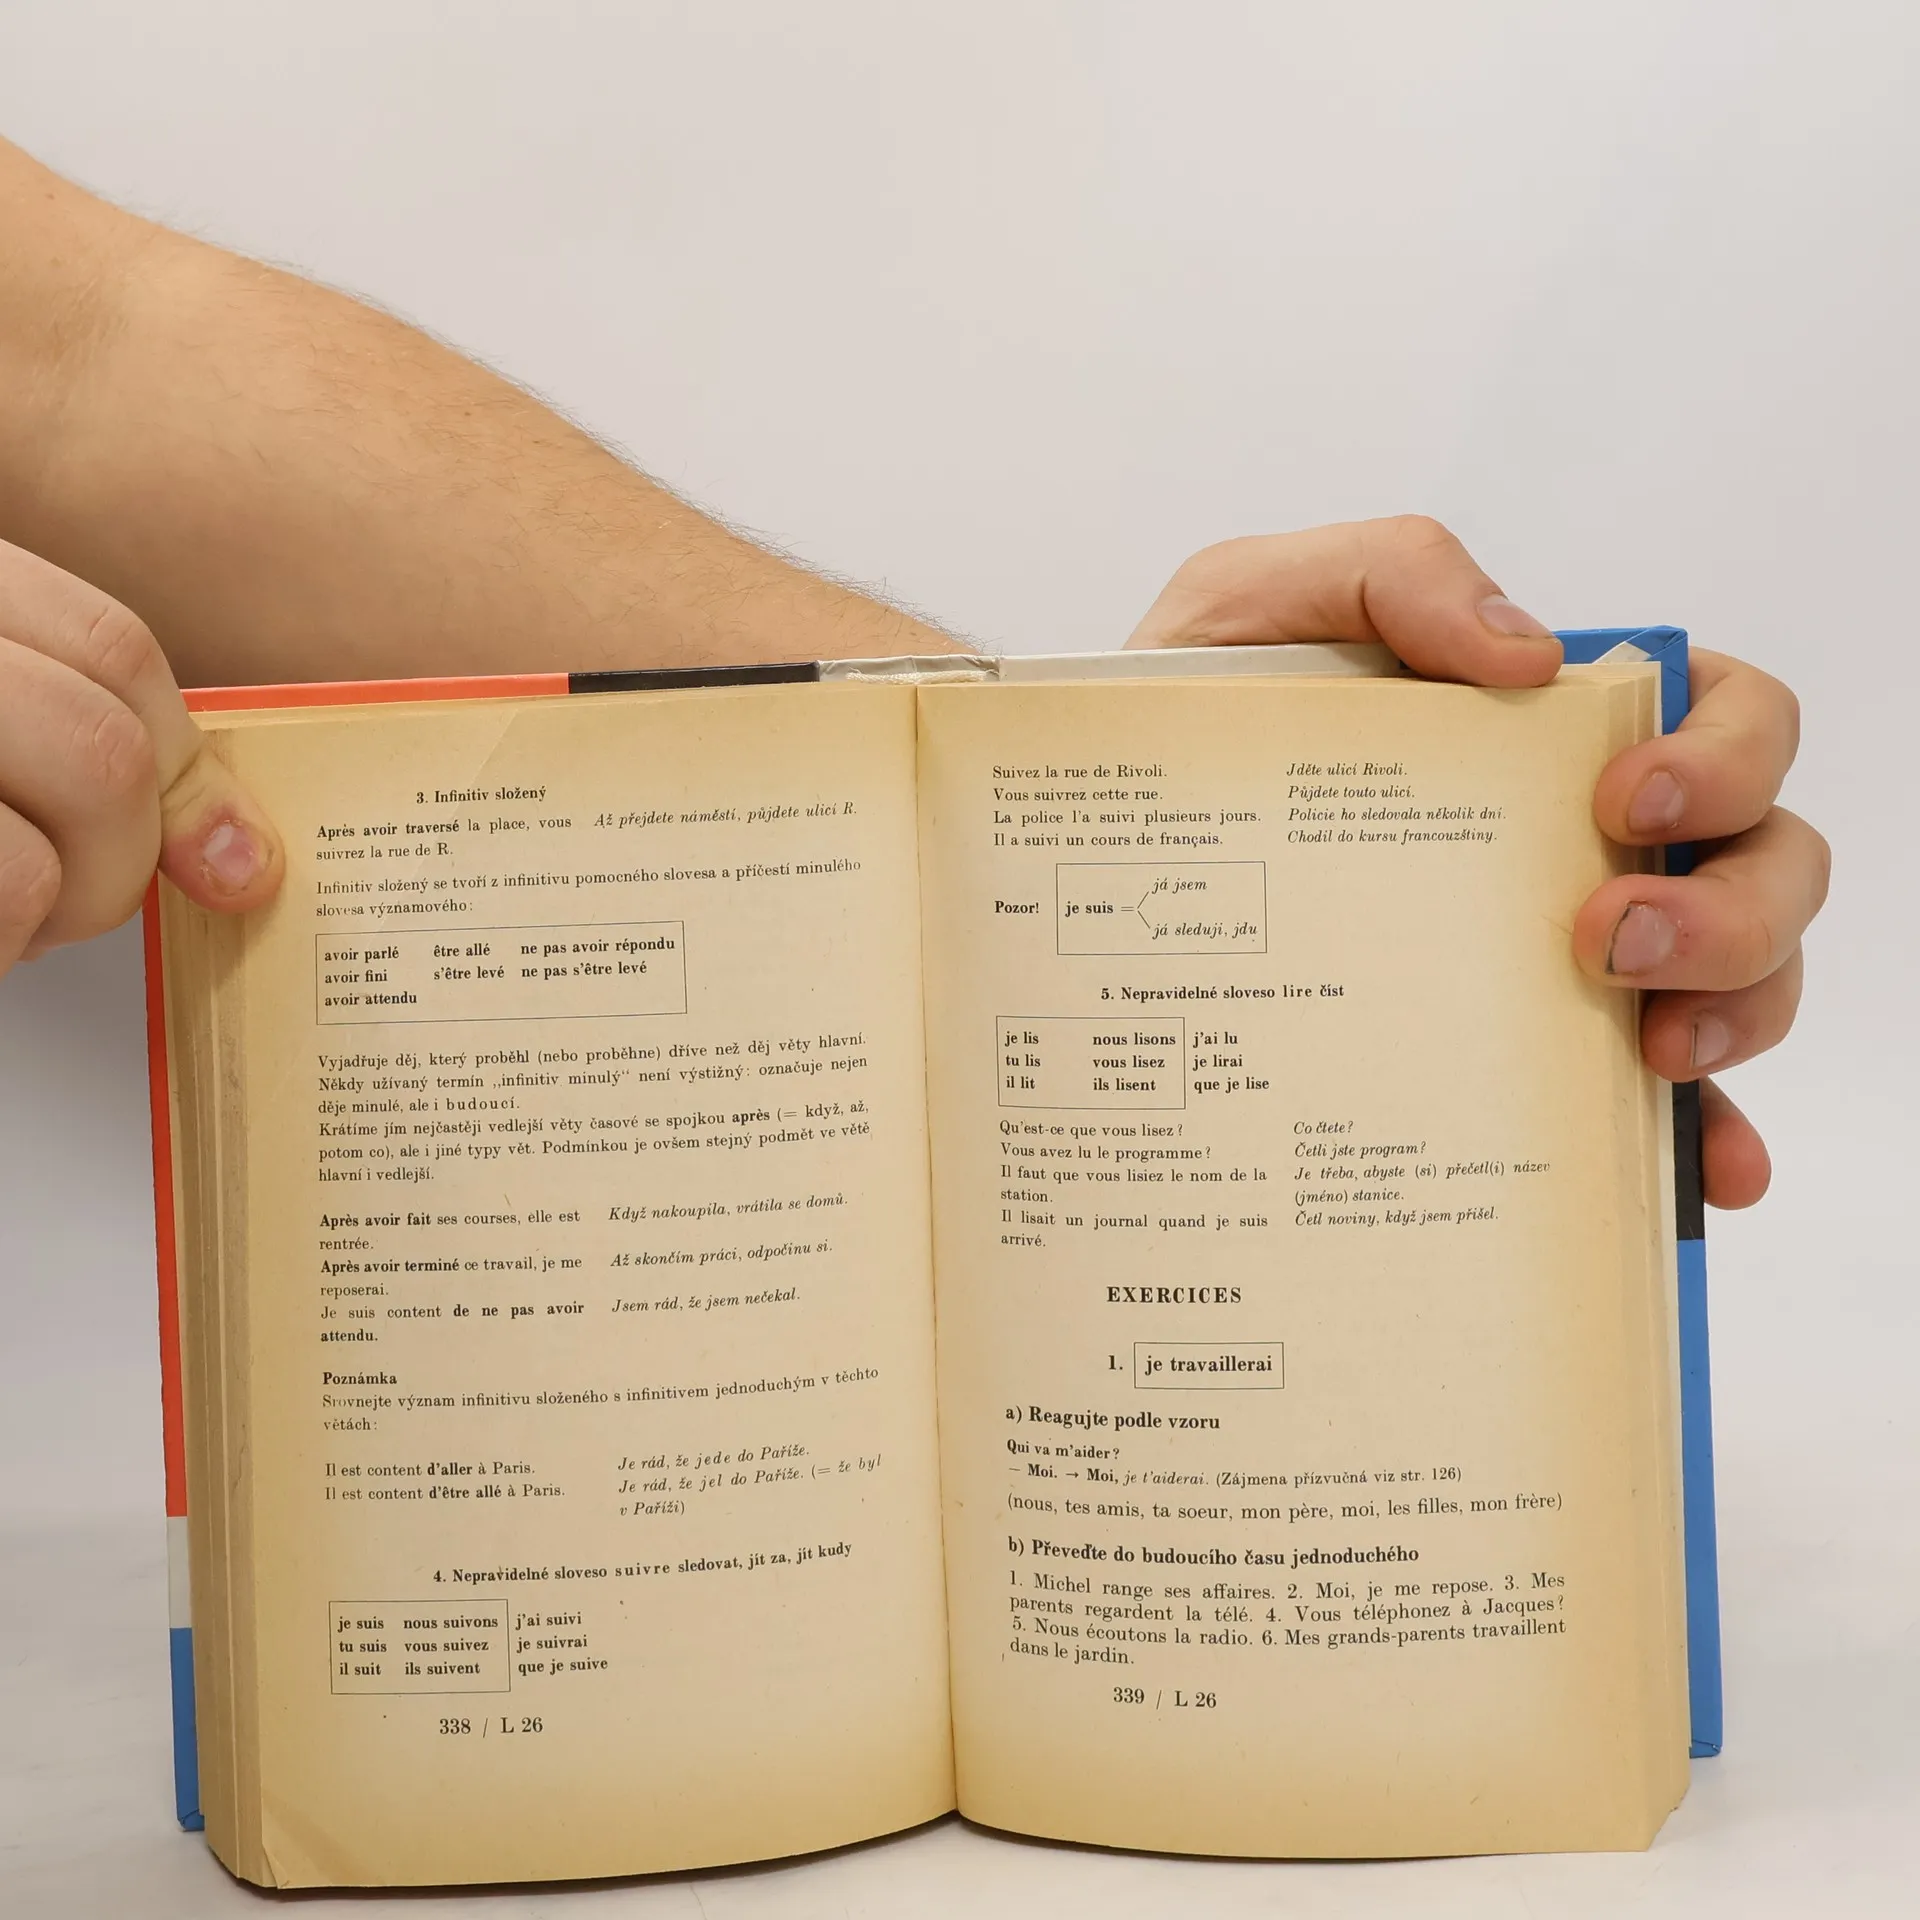 3. Infinitiv složený
Après avoir traversé la place, vous Až přejdete náměstí, půjdete ulicí R.
suivrez la rue de R.
Infinitiv složený se tvoří z infinitivu pomocného slovesa a příčestí minulého
slovesa významového:
avoir parlé être allé ne pas avoir répondu
avoir fini s'être levé ne pas s'être levé
avoir attendu
Vyjadřuje děj, který proběhl (nebo proběhne) dříve než děj věty hlavní.
Někdy užívaný termín „infinitiv minulý“ není výstižný: označuje nejen
děje minulé, ale i budoucí.
Krátíme jím nejčastěji vedlejší věty časové se spojkou après (= když, až,
potom co), ale i jiné typy vět. Podmínkou je ovšem stejný podmět ve větě
hlavní i vedlejší.
Après avoir fait ses courses, elle est Když nakoupila, vrátila se domů.
rentrée.
Après avoir terminé ce travail, je me Až skončím práci, odpočinu si.
reposerai.
Je suis content de ne pas avoir Jsem rád, že jsem nečekal.
attendu.
Poznámka
Srovnejte význam infinitivu složeného s infinitivem jednoduchým v těchto
větách:
Il est content d'aller à Paris. Je rád, že jede do Paříže.
Il est content d'être allé à Paris. Je rád, že jel do Paříže. (= že byl
v Paříži)
4. Nepravidelné sloveso suivre sledovat, jít za, jít kudy
je suis nous suivons j'ai suivi
tu suis vous suivez je suivrai
il suit ils suivent que je suive
338 / L 26
Suivez la rue de Rivoli. Jděte ulicí Rivoli.
Vous suivrez cette rue. Půjdete touto ulicí.
La police l'a suivi plusieurs jours. Policie ho sledovala několik dní.
Il a suivi un cours de français. Chodil do kursu francouzštiny.
já jsem
Pozor! je suis =
já sleduji, jdu
5. Nepravidelné sloveso lire číst
je lis nous lisons j'ai lu
tu lis vous lisez je lirai
il lit ils lisent que je lise
Qu'est-ce que vous lisez? Co čtete?
Vous avez lu le programme? Četli jste program?
Il faut que vous lisiez le nom de la Je třeba, abyste (si) přečetl(i) název
station. (jméno) stanice.
Il lisait un journal quand je suis Četl noviny, když jsem přišel.
arrivé.
EXERCICES
1. je travaillerai
a) Reagujte podle vzoru
Qui va m'aider?
— Moi. → Moi, je t'aiderai. (Zájmena přízvučná viz str. 126)
(nous, tes amis, ta soeur, mon père, moi, les filles, mon frère)
b) Převeďte do budoucího času jednoduchého
1. Michel range ses affaires. 2. Moi, je me repose. 3. Mes
parents regardent la télé. 4. Vous téléphonez à Jacques?
5. Nous écoutons la radio. 6. Mes grands-parents travaillent
dans le jardin.
339 / L 26